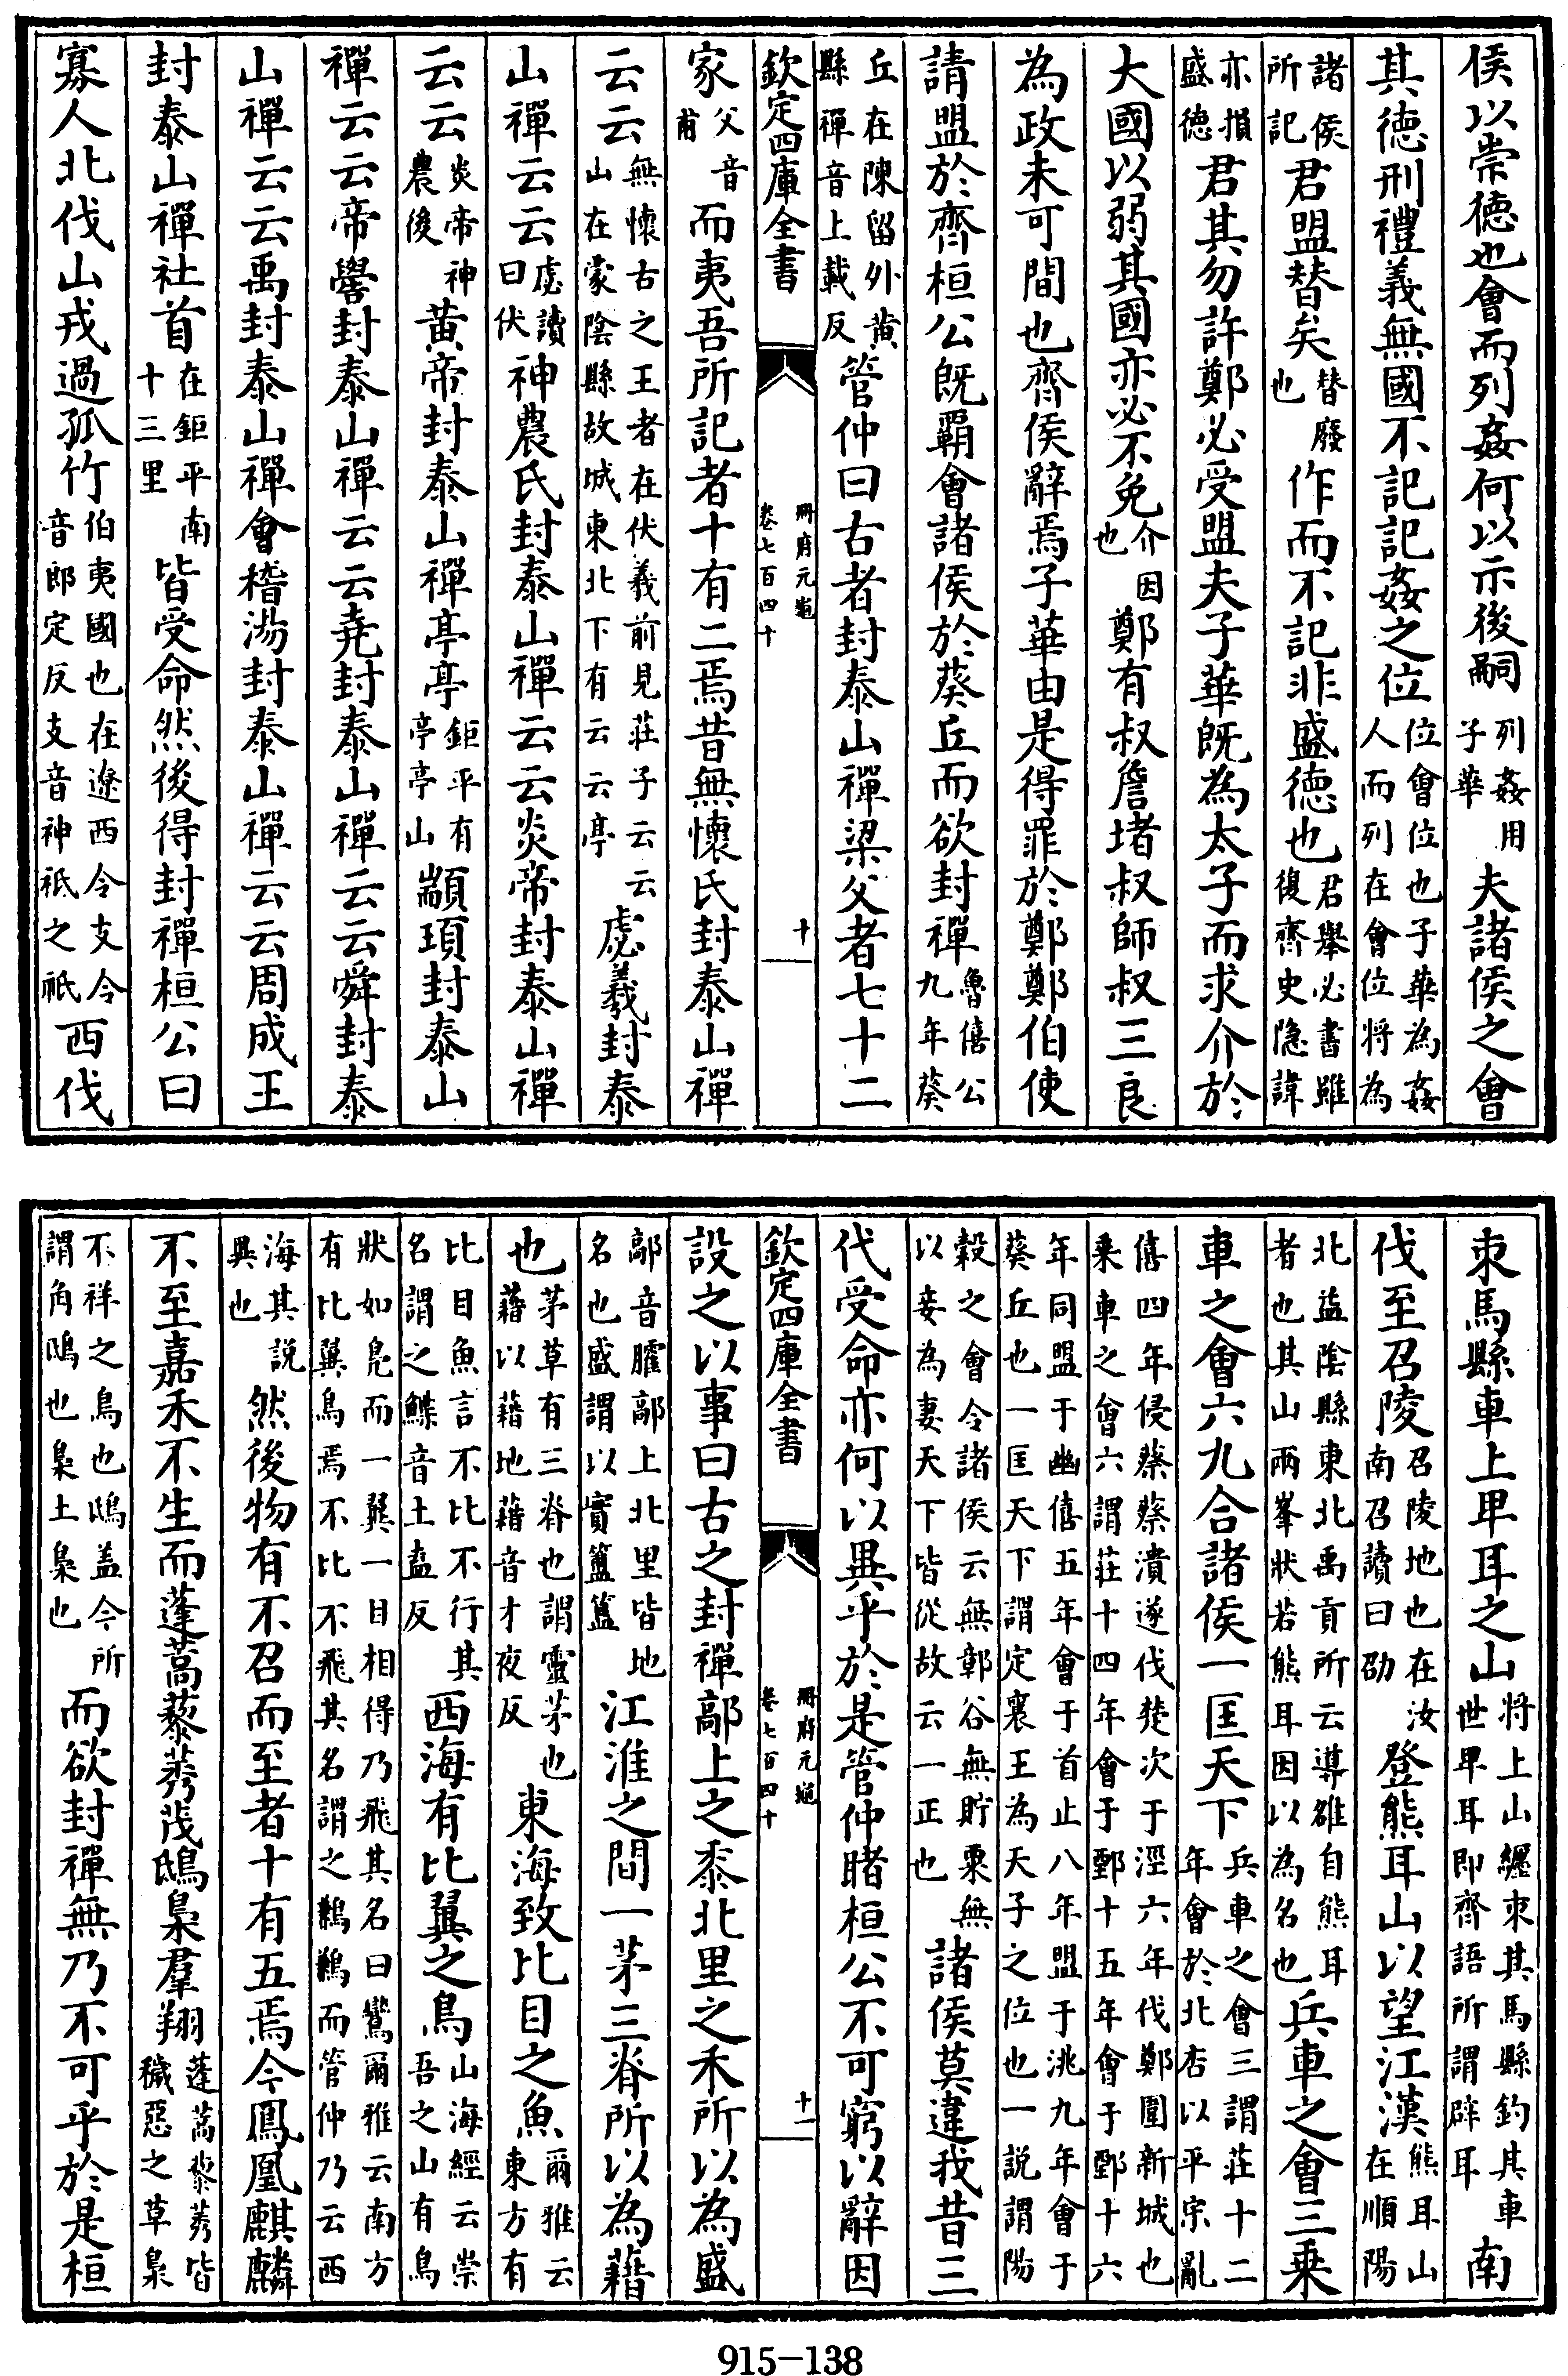 侯以崇徳也會而列姦何以示後嗣列姦用子華夫諸侯之會
其徳刑禮義無國不記記姦之位位會位也子華為姦人而列在會位將為
諸侯所記君盟替矣替廢也作而不記非盛徳也君舉必書雖復齊史隱諱
亦損盛徳君其勿許鄭必受盟夫子華既為太子而求介於
大國以弱其國亦必不免介因也鄭有叔詹堵叔師叔三良
為政未可間也齊侯辭焉子華由是得罪於鄭鄭伯使
請盟於齊桓公既霸會諸侯於葵丘而欲封禪魯僖公九年葵
丘在陳留外黄縣禪音上載反管仲曰古者封泰山禪梁父者七十二
欽定四庫全書 冊府元龜 卷七百四十 十
家父音甫而夷吾所記者十有二焉昔無懷氏封泰山禪
云云無懷古之王者在伏羲前見莊子云云山在蒙陰縣故城東北下有云云亭虙羲封泰
山禪云云虙讀曰伏神農氏封泰山禪云云炎帝封泰山禪
云云炎帝神農後黄帝封泰山禪亭亭鉅平有亭亭山顓頊封泰山
禪云云帝嚳封泰山禪云云堯封泰山禪云云舜封泰
山禪云云禹封泰山禪會稽湯封泰山禪云云周成王
封泰山禪社首在鉅平南十三里皆受命然後得封禪桓公曰
寡人北伐山戎過孤竹伯夷國也在遼西令支令音郎定反支音神祇之祇西伐
束馬縣車上卑耳之山將上山纒束其馬縣鈎其車世卑耳即齊語所謂辟耳南
伐至召陵召陵地也在汝南召讀曰劭登熊耳山以望江漢熊耳山在順陽
北益陰縣東北禹貢所云導雒自熊耳者也其山兩峯狀若熊耳因以為名也兵車之會三乗
車之會六九合諸侯一匡天下兵車之會三謂莊十二年會於北杏以平宗亂
僖四年侵蔡蔡潰遂伐楚次于涇六年伐鄭圍新城也乗車之會六謂莊十四年會于鄄十五年會于鄄十六
年同盟于幽僖五年會于首止八年盟于洮九年會于葵丘也一匡天下謂定襄王為天子之位也一説謂陽
穀之會令諸侯云無鄣谷無貯粟無以妾為妻天下皆從故云一正也諸侯莫違我昔三
代受命亦何以異乎於是管仲睹桓公不可窮以辭因
欽定四庫全書 冊府元龜 卷七百四十 十一
設之以事曰古之封禪鄗上之黍北里之禾所以為盛
鄗音臛鄗上北里皆地名也盛謂以實簠簋江淮之間一茅三脊所以為藉
也茅草有三脊也謂靈茅也藉以藉地藉音才夜反東海致比目之魚爾雅云東方有
比目魚言不比不行其名謂之鰈音土盍反西海有比翼之鳥山海經云崇吾之山有鳥
狀如鳬而一翼一目相得乃飛其名曰鸞爾雅云南方有比翼鳥焉不比不飛其名謂之鶼鶼而管仲乃云西
海其説異也然後物有不召而至者十有五焉今鳳凰麒麟
不至嘉禾不生而蓬蒿藜莠茂鴟梟羣翔蓬蒿藜莠皆穢惡之草梟
不祥之鳥也鴟盖今所謂角鴟也梟土梟也而欲封禪無乃不可乎於是桓
915-138